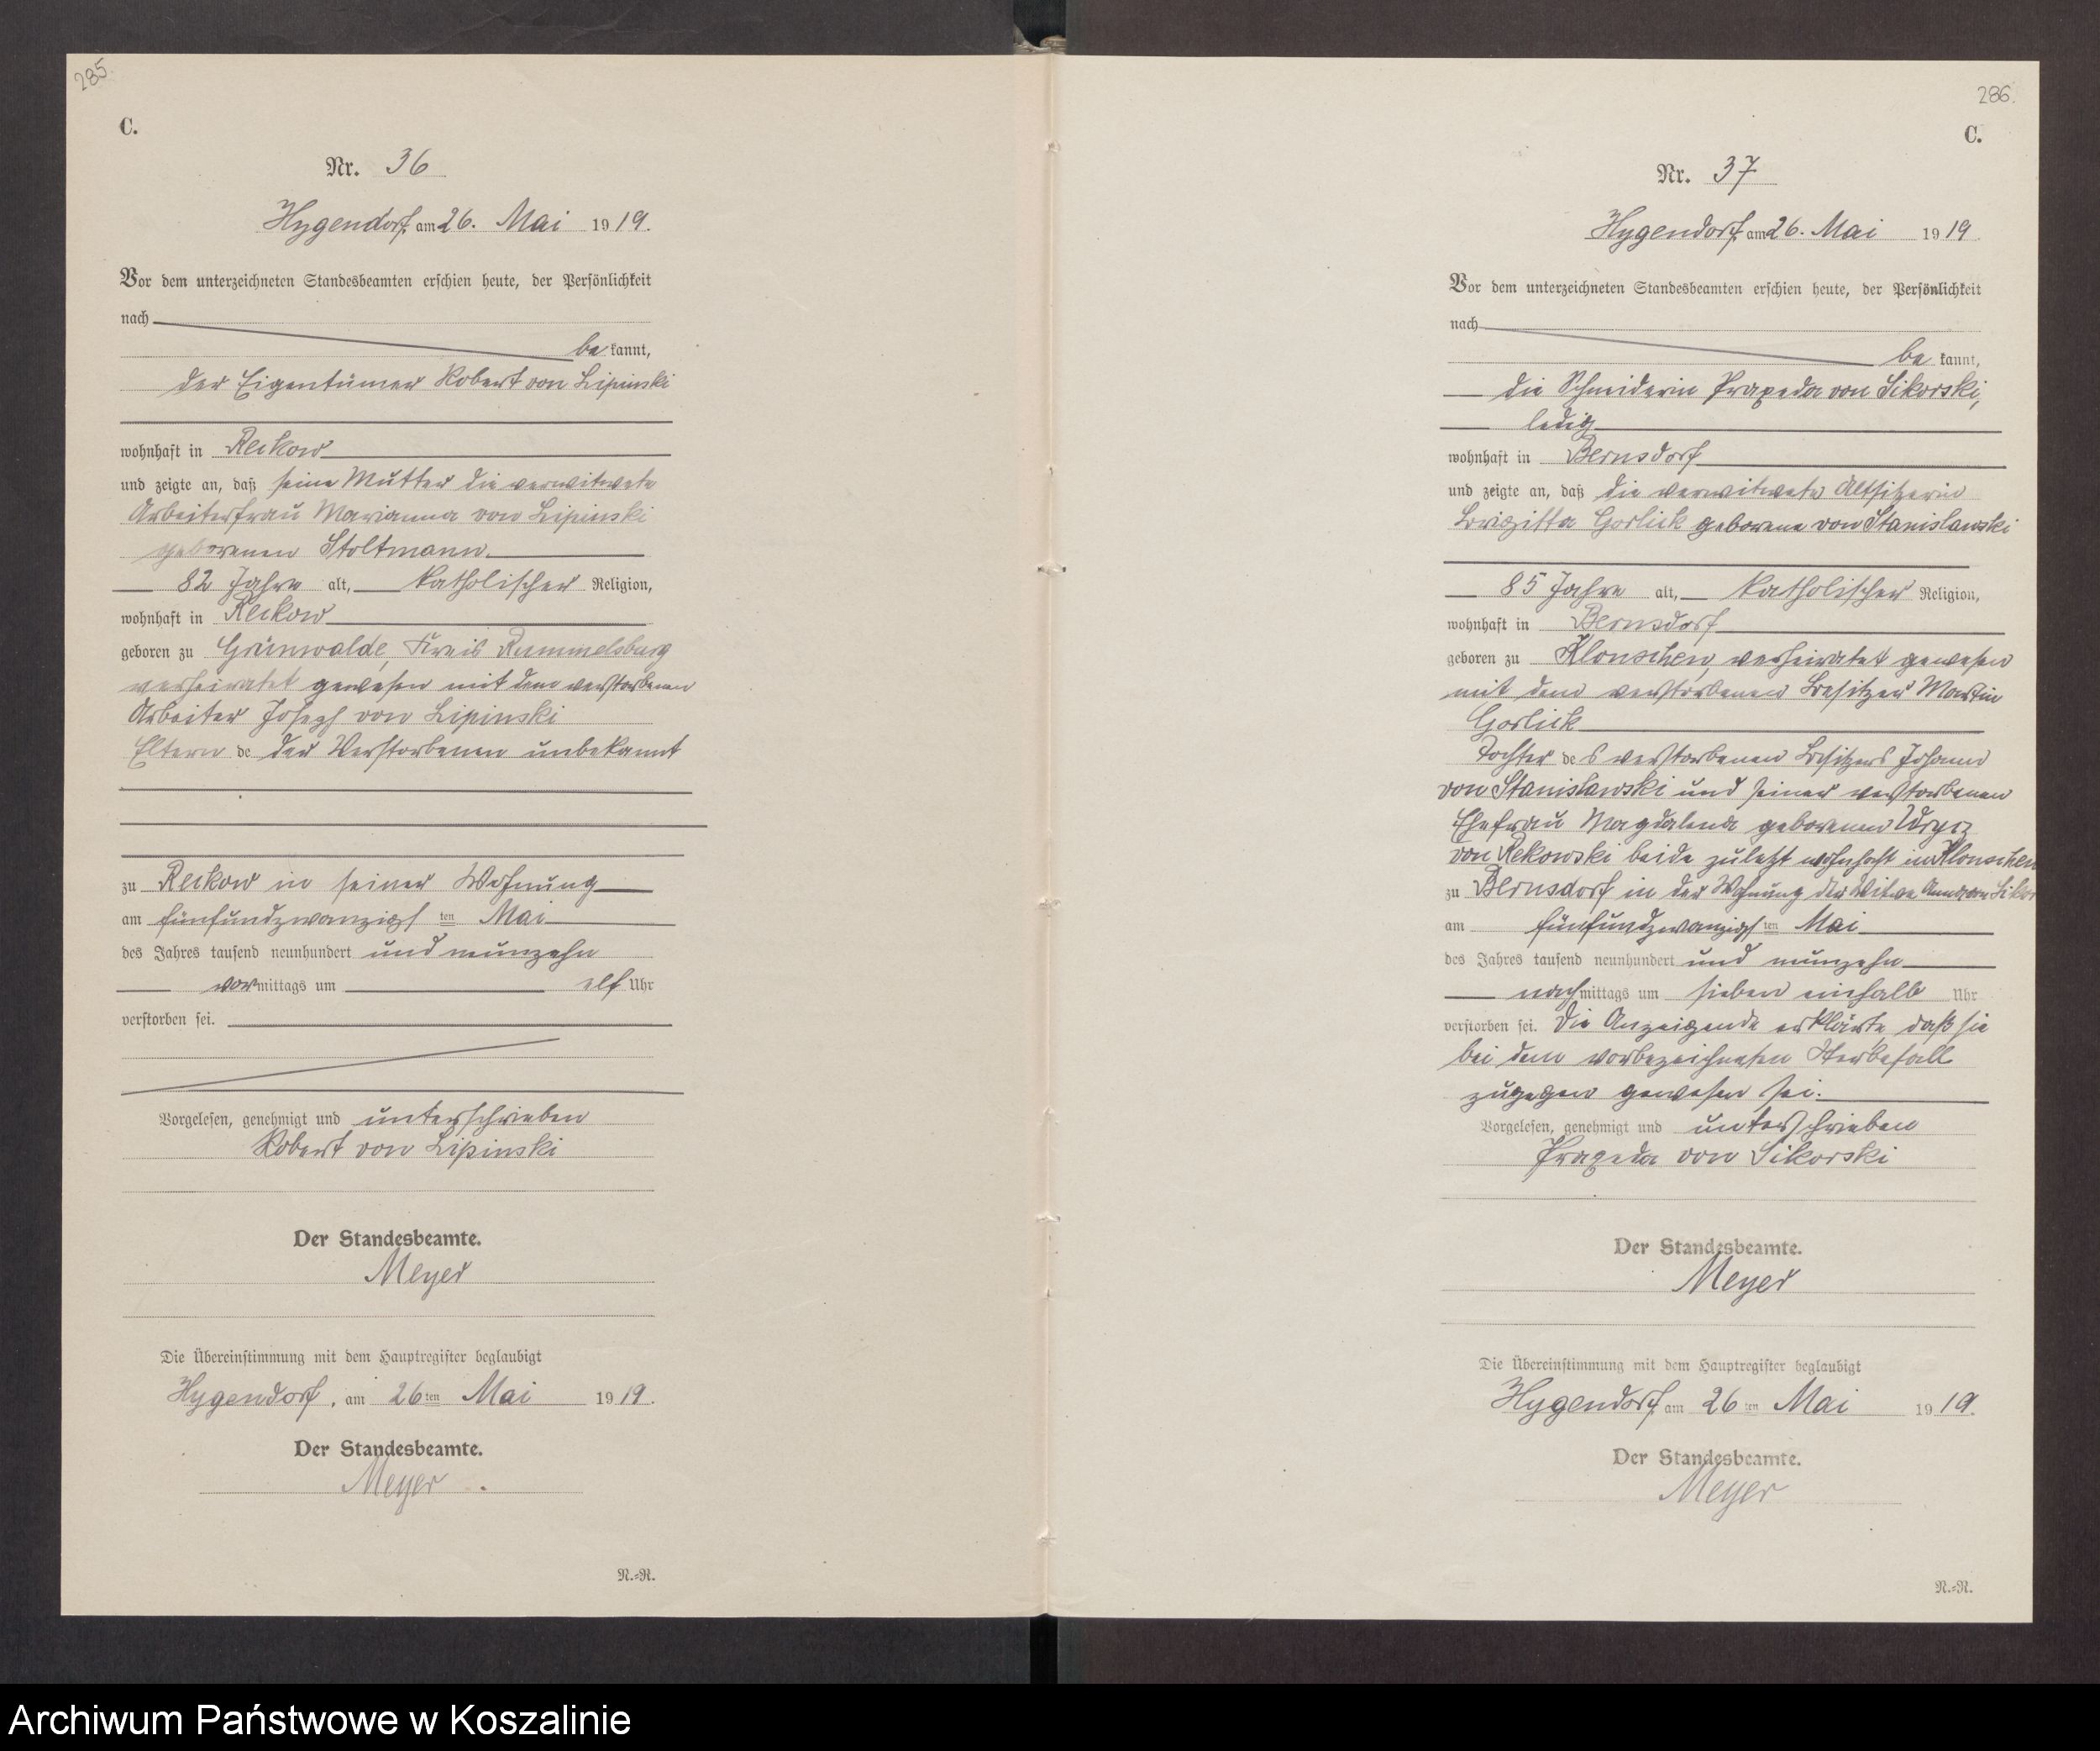 285
C.
Nr. 36
Hygendorf, am 26. Mai 1919.
Vor dem unterzeichneten Standesbeamten erschien heute, der Persönlichkeit
nach
be kannt,
der Eigentümer Robert von Lipinski
wohnhaft in Reckow
und zeigte an, daß seine Mutter die verwitwete
Arbeiterfrau Marianna von Lipinski
geborenen Stoltmann
82 Jahre alt, katholischer Religion,
wohnhaft in Reckow
geboren zu Grünwalde, Kreis Rummelsburg
verheiratet gewesen mit dem verstorbenen
Arbeiter Joseph von Lipinski
Eltern de der Verstorbenen unbekannt
zu Reckow in seiner Wohnung
am fünfundzwanzigsten Mai
des Jahres tausend neunhundert und neunzehn
vormittags um elf Uhr
verstorben sei.
Vorgelesen, genehmigt und unterschrieben
Robert von Lipinski
Der Standesbeamte.
Meyer
Die Übereinstimmung mit dem Hauptregister beglaubigt
Hygendorf, am 26ten Mai 1919.
Der Standesbeamte.
Meyer.
N.=N.
286.
C.
Nr. 37
Hygendorf, am 26. Mai 1919
Vor dem unterzeichneten Standesbeamten erschien heute, der Persönlichkeit
nach
be kannt,
die Schneiderin Praxeda von Sikorski,
ledig
wohnhaft in Bernsdorf
und zeigte an, daß die verwitwete Altsitzerin
Brigitta Gorlick geborene von Stanislawski
85 Jahre alt, katholischer Religion,
wohnhaft in Bernsdorf
geboren zu Klonschen, verheiratet gewesen
mit dem verstorbenen Besitzer Martin
Gorlick
Tochter des verstorbenen Besitzers Johann
von Stanislawski und seiner verstorbenen
Ehefrau Magdalena geborenen Wrycz
von Rekowski beide zuletzt wohnhaft in Klonschen
zu Bernsdorf in der Wohnung der Witwe Anna von Sikor
am fünfundzwanzigsten Mai
des Jahres tausend neunhundert und neunzehn
nachmittags um sieben einhalb Uhr
verstorben sei. Die Anzeigende erklärte, daß sie
bei dem vorbezeichneten Sterbefall
zugegen gewesen sei.
Vorgelesen, genehmigt und unterschrieben
Praxeda von Sikorski
Der Standesbeamte.
Meyer
Die Übereinstimmung mit dem Hauptregister beglaubigt
Hygendorf, am 26ten Mai 1919.
Der Standesbeamte.
Meyer
N.=N.
Archiwum Państwowe w Koszalinie